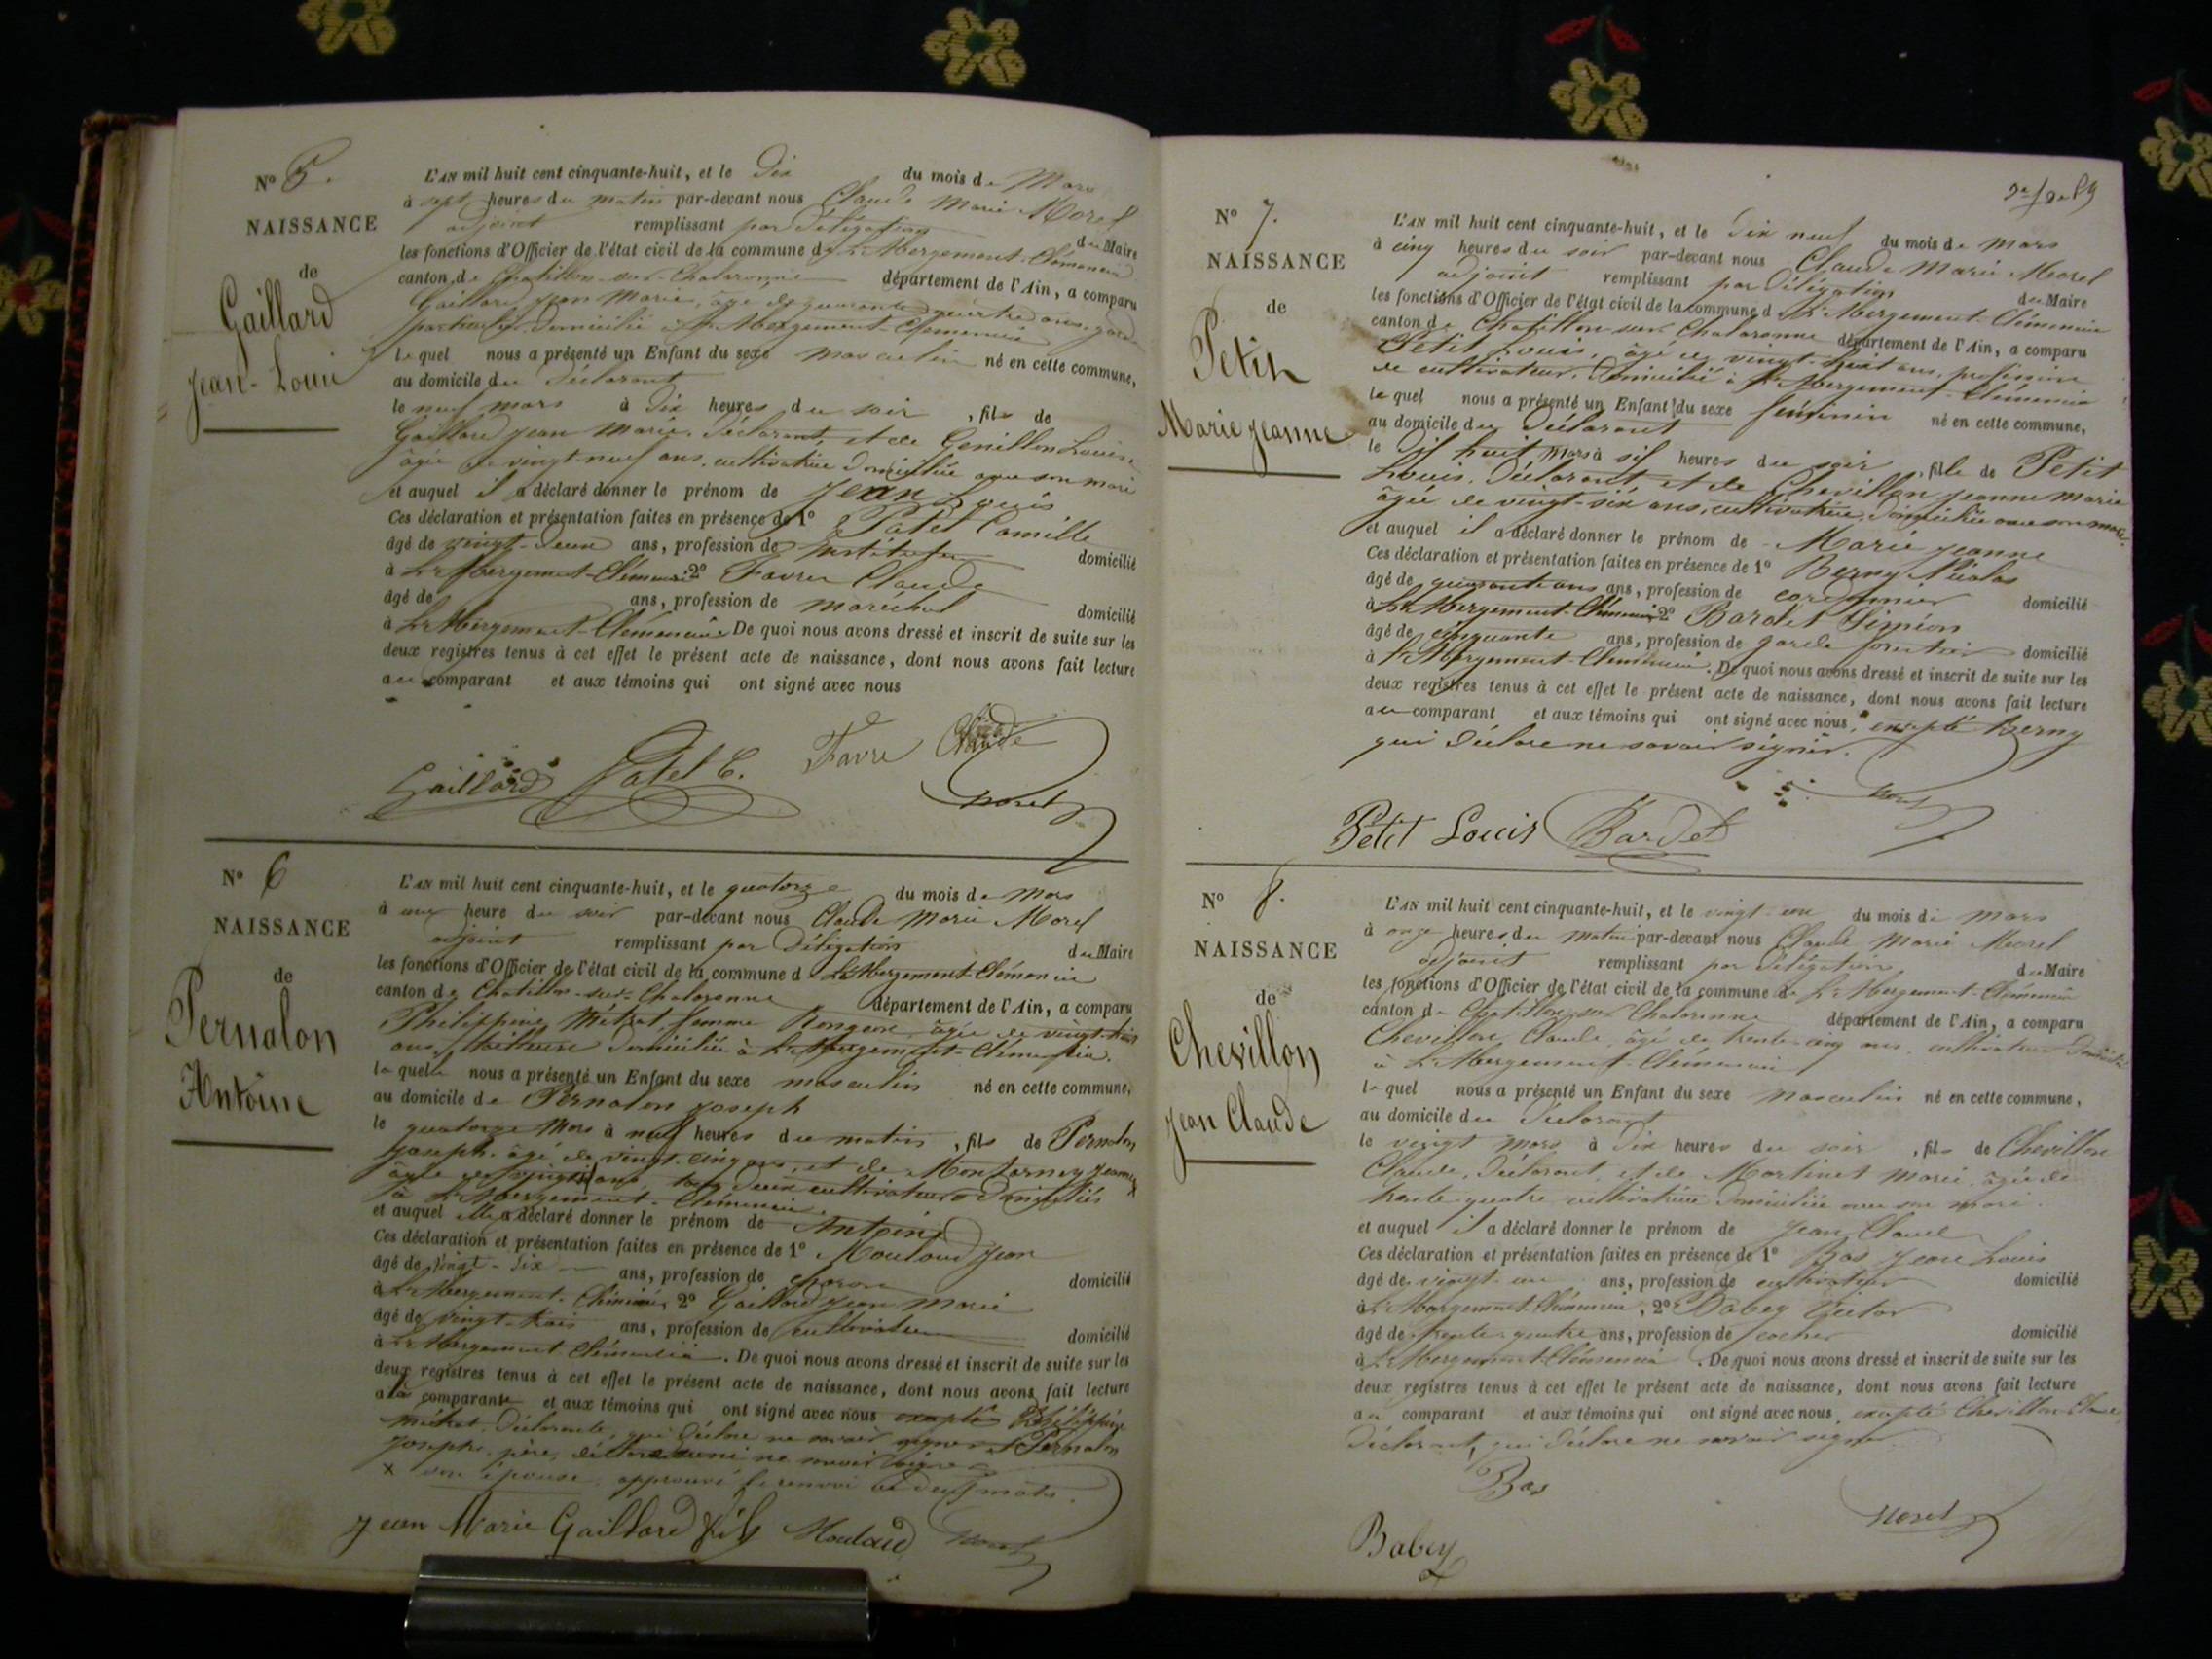 N° 5.
NAISSANCE
de
Gaillard
Jean-Louis
L'AN mil huit cent cinquante-huit, et le Dix du mois de Mars
à sept heures du matin par-devant nous Claude Marie Morel
adjoint remplissant par Délégation du Maire
les fonctions d'Officier de l'état civil de la commune de L'Abergement-Clémencia
canton de Chatillon-sur-Chalaronne département de l'Ain, a comparu
Gaillard Jean Marie, âgé de quarante quatre ans, garde
particulier Domicilié à L'Abergement-Clémencia
lequel nous a présenté un Enfant du sexe masculin né en cette commune,
au domicile du Déclarant
le neuf mars à Dix heures du soir, fils de
Gaillard Jean Marie, Déclarant, et de Genillon Louise
âgée de vingt-neuf ans, cultivatrice Domiciliée avec son mari
et auquel il a déclaré donner le prénom de Jean Louis
Ces déclaration et présentation faites en présence de 1° Patel Camille
âgé de vingt-deux ans, profession de Instituteur domicilié
à L'Abergement-Clémencia 2° Favre Claude
âgé de ans, profession de maréchal domicilié
à L'Abergement-Clémencia De quoi nous avons dressé et inscrit de suite sur les
deux registres tenus à cet effet le présent acte de naissance, dont nous avons fait lecture
au comparant et aux témoins qui ont signé avec nous
Gaillard Patel C. Favre Claude
Morel
N° 6
NAISSANCE
de
Pernalon
Antoine
L'AN mil huit cent cinquante-huit, et le quatorze du mois de Mars
à une heure du soir par-devant nous Claude Marie Morel
adjoint remplissant par Délégation du Maire
les fonctions d'Officier de l'état civil de la commune d L'Abergement-Clémencia
canton de Chatillon-sur-Chalaronne département de l'Ain, a comparu
Philippine Métrat femme âgée de vingt-trois
ans, Domiciliée à L'Abergement-Clémencia.
laquelle nous a présenté un Enfant du sexe masculin né en cette commune,
au domicile de Pernalon Joseph
le quatorze Mars à neuf heures du matin, fils de Pernalon
Joseph, âgé de vingt-cinq ans, et de Jeanne x
âgée de ans, tous deux cultivateurs Domiciliés
à L'Abergement-Clémencia.
et auquel elle a déclaré donner le prénom de Antoine
Ces déclaration et présentation faites en présence de 1° Moulaud Jean
âgé de vingt-six ans, profession de charron domicilié
à L'Abergement-Clémencia, 2° Gaillard Jean Marie
âgé de vingt-trois ans, profession de cultivateur domicilié
à L'Abergement-Clémencia. De quoi nous avons dressé et inscrit de suite sur les
deux registres tenus à cet effet le présent acte de naissance, dont nous avons fait lecture
à la comparante et aux témoins qui ont signé avec nous exceptés Philippine
Métrat, Déclarante, qui Déclare ne savoir signer et Pernalon
Joseph, père, ne savoir signer
x son épouse, approuvé le renvoi de deux mots.
Jean Marie Gaillard fils Moulaud Morel
N° 7.
NAISSANCE
de
Petit
Marie Jeanne
L'AN mil huit cent cinquante-huit, et le Dix neuf du mois de Mars
à cinq heures du soir par-devant nous Claude Marie Morel
adjoint remplissant par Délégation du Maire
les fonctions d'Officier de l'état civil de la commune d L'Abergement-Clémencia
canton de Chatillon-sur-Chalaronne département de l'Ain, a comparu
Petit Louis, âgé de vingt-huit ans, profession
de cultivateur, Domicilié à L'Abergement-Clémencia
lequel nous a présenté un Enfant du sexe féminin né en cette commune,
au domicile du Déclarant
le Dix huit Mars à six heures du soir, fille de Petit
Louis, Déclarant et de Chevillon Jeanne Marie
âgée de vingt-six ans, cultivatrice, Domiciliée avec son mari.
et auquel il a déclaré donner le prénom de Marie Jeanne
Ces déclaration et présentation faites en présence de 1° Berny Nicolas
âgé de quarante ans ans, profession de cordonnier domicilié
à L'Abergement-Clémencia 2° Bardet Siméon
âgé de cinquante ans, profession de garde forestier domicilié
à L'Abergement-Clémencia. De quoi nous avons dressé et inscrit de suite sur les
deux registres tenus à cet effet le présent acte de naissance, dont nous avons fait lecture
au comparant et aux témoins qui ont signé avec nous, excepté Berny
qui Déclare ne savoir signer.
Morel
Petit Louis Bardet
N° 8.
NAISSANCE
de
Chevillon
Jean Claude
L'AN mil huit cent cinquante-huit, et le vingt-un du mois de Mars
à onze heures du matin par-devant nous Claude Marie Morel
adjoint remplissant par Délégation du Maire
les fonctions d'Officier de l'état civil de la commune de L'Abergement-Clémencia
canton de Chatillon-sur-Chalaronne département de l'Ain, a comparu
Chevillon Claude, âgé de trente-cinq ans, cultivateur Domicilié
à L'Abergement-Clémencia
lequel nous a présenté un Enfant du sexe masculin né en cette commune,
au domicile du Déclarant
le vingt Mars à Dix heures du soir, fils de Chevillon
Claude, Déclarant, et de Martinet Marie, âgée de
trente-quatre, cultivatrice Domiciliée avec son mari.
et auquel il a déclaré donner le prénom de Jean Claude
Ces déclaration et présentation faites en présence de 1° Bas Jean Louis
âgé de vingt-un ans, profession de cultivateur domicilié
à L'Abergement-Clémencia, 2° Babey Victor
âgé de trente-quatre ans, profession de cocher domicilié
à L'Abergement-Clémencia. De quoi nous avons dressé et inscrit de suite sur les
deux registres tenus à cet effet le présent acte de naissance, dont nous avons fait lecture
au comparant et aux témoins qui ont signé avec nous, excepté Chevillon Claude,
Déclarant, qui Déclare ne savoir signer.
Bas
Morel
Babey